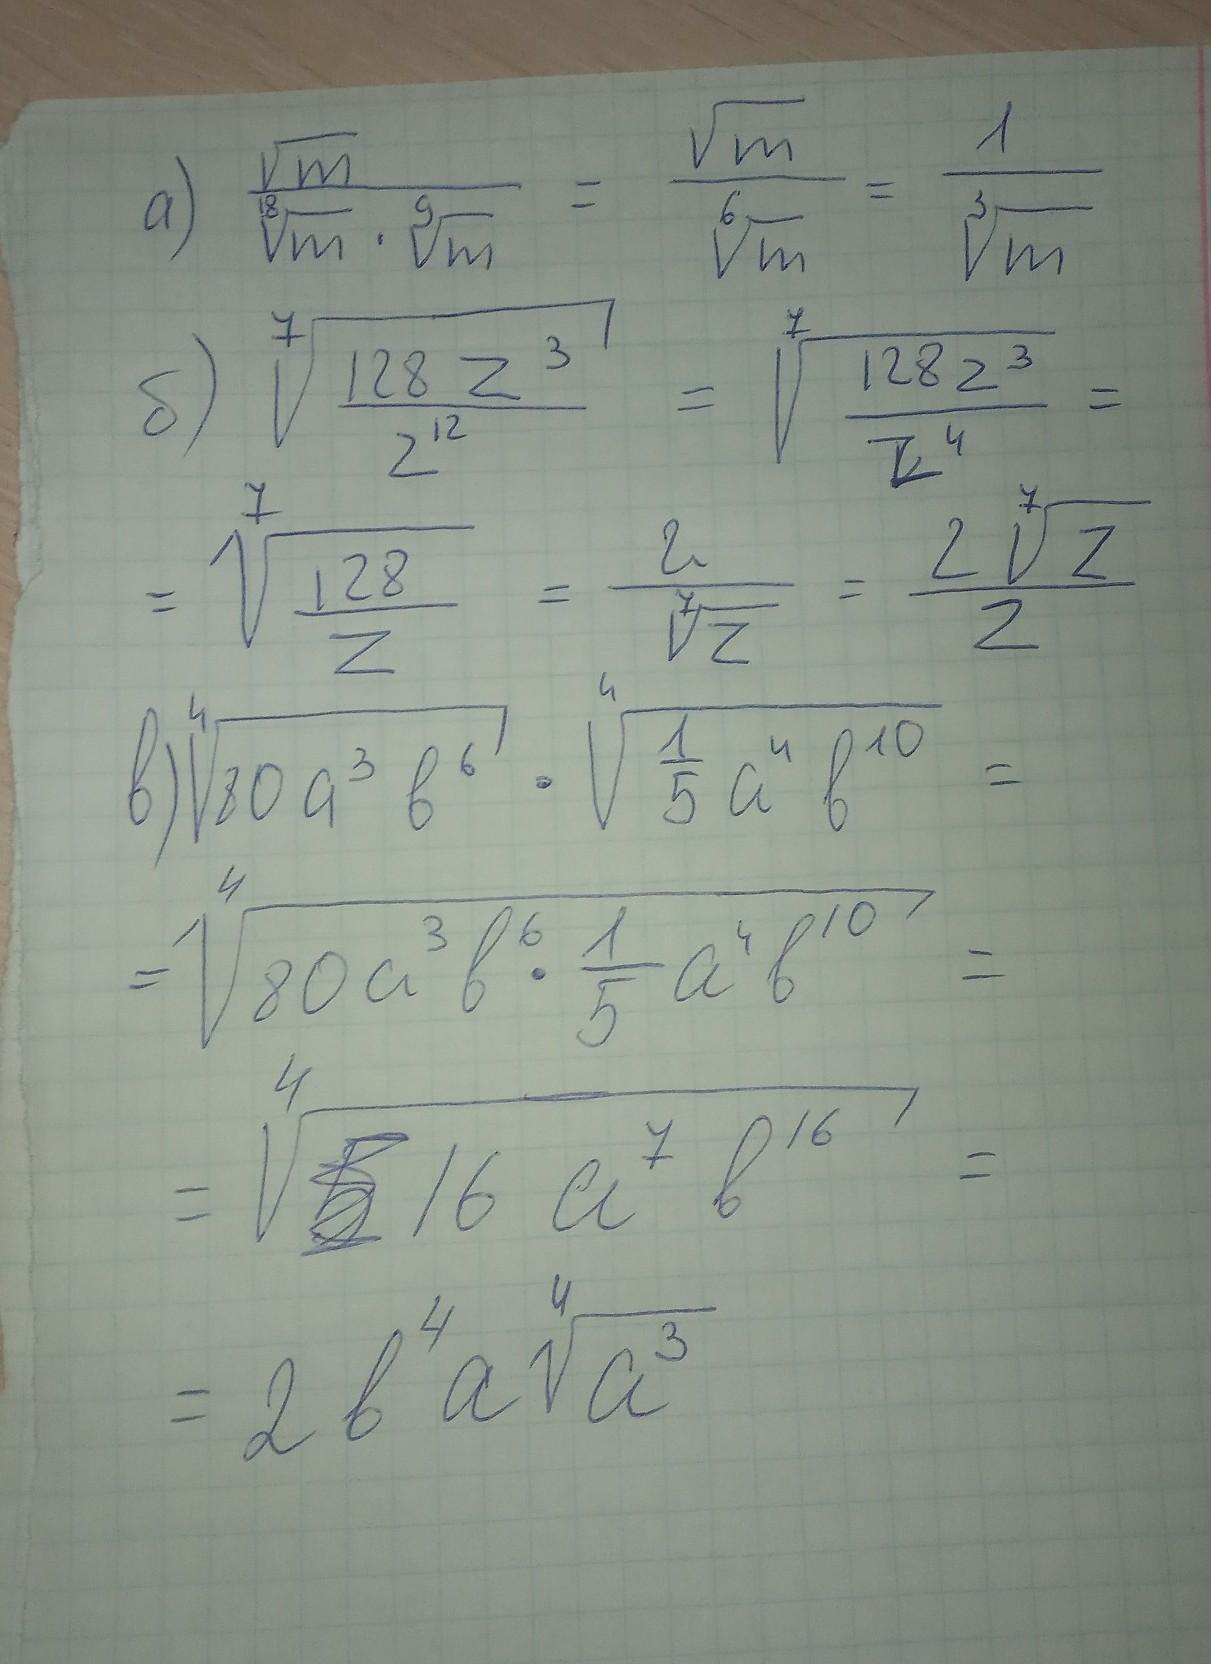 а) √m / (¹⁸√m · ⁹√m) = √m / ⁶√m = 1 / ³√m
б) ⁷√(128 z³ / z¹²) = ⁷√(128 z³ / z⁴) =
= ⁷√(128 / z) = 2 / ⁷√z = 2 ⁷√z / z
в) ⁴√(80 a³ b⁶) · ⁴√(1/5 a⁴ b¹⁰) =
= ⁴√(80 a³ b⁶ · 1/5 a⁴ b¹⁰) =
= ⁴√(16 a⁷ b¹⁶) =
= 2 b⁴ a ⁴√a³